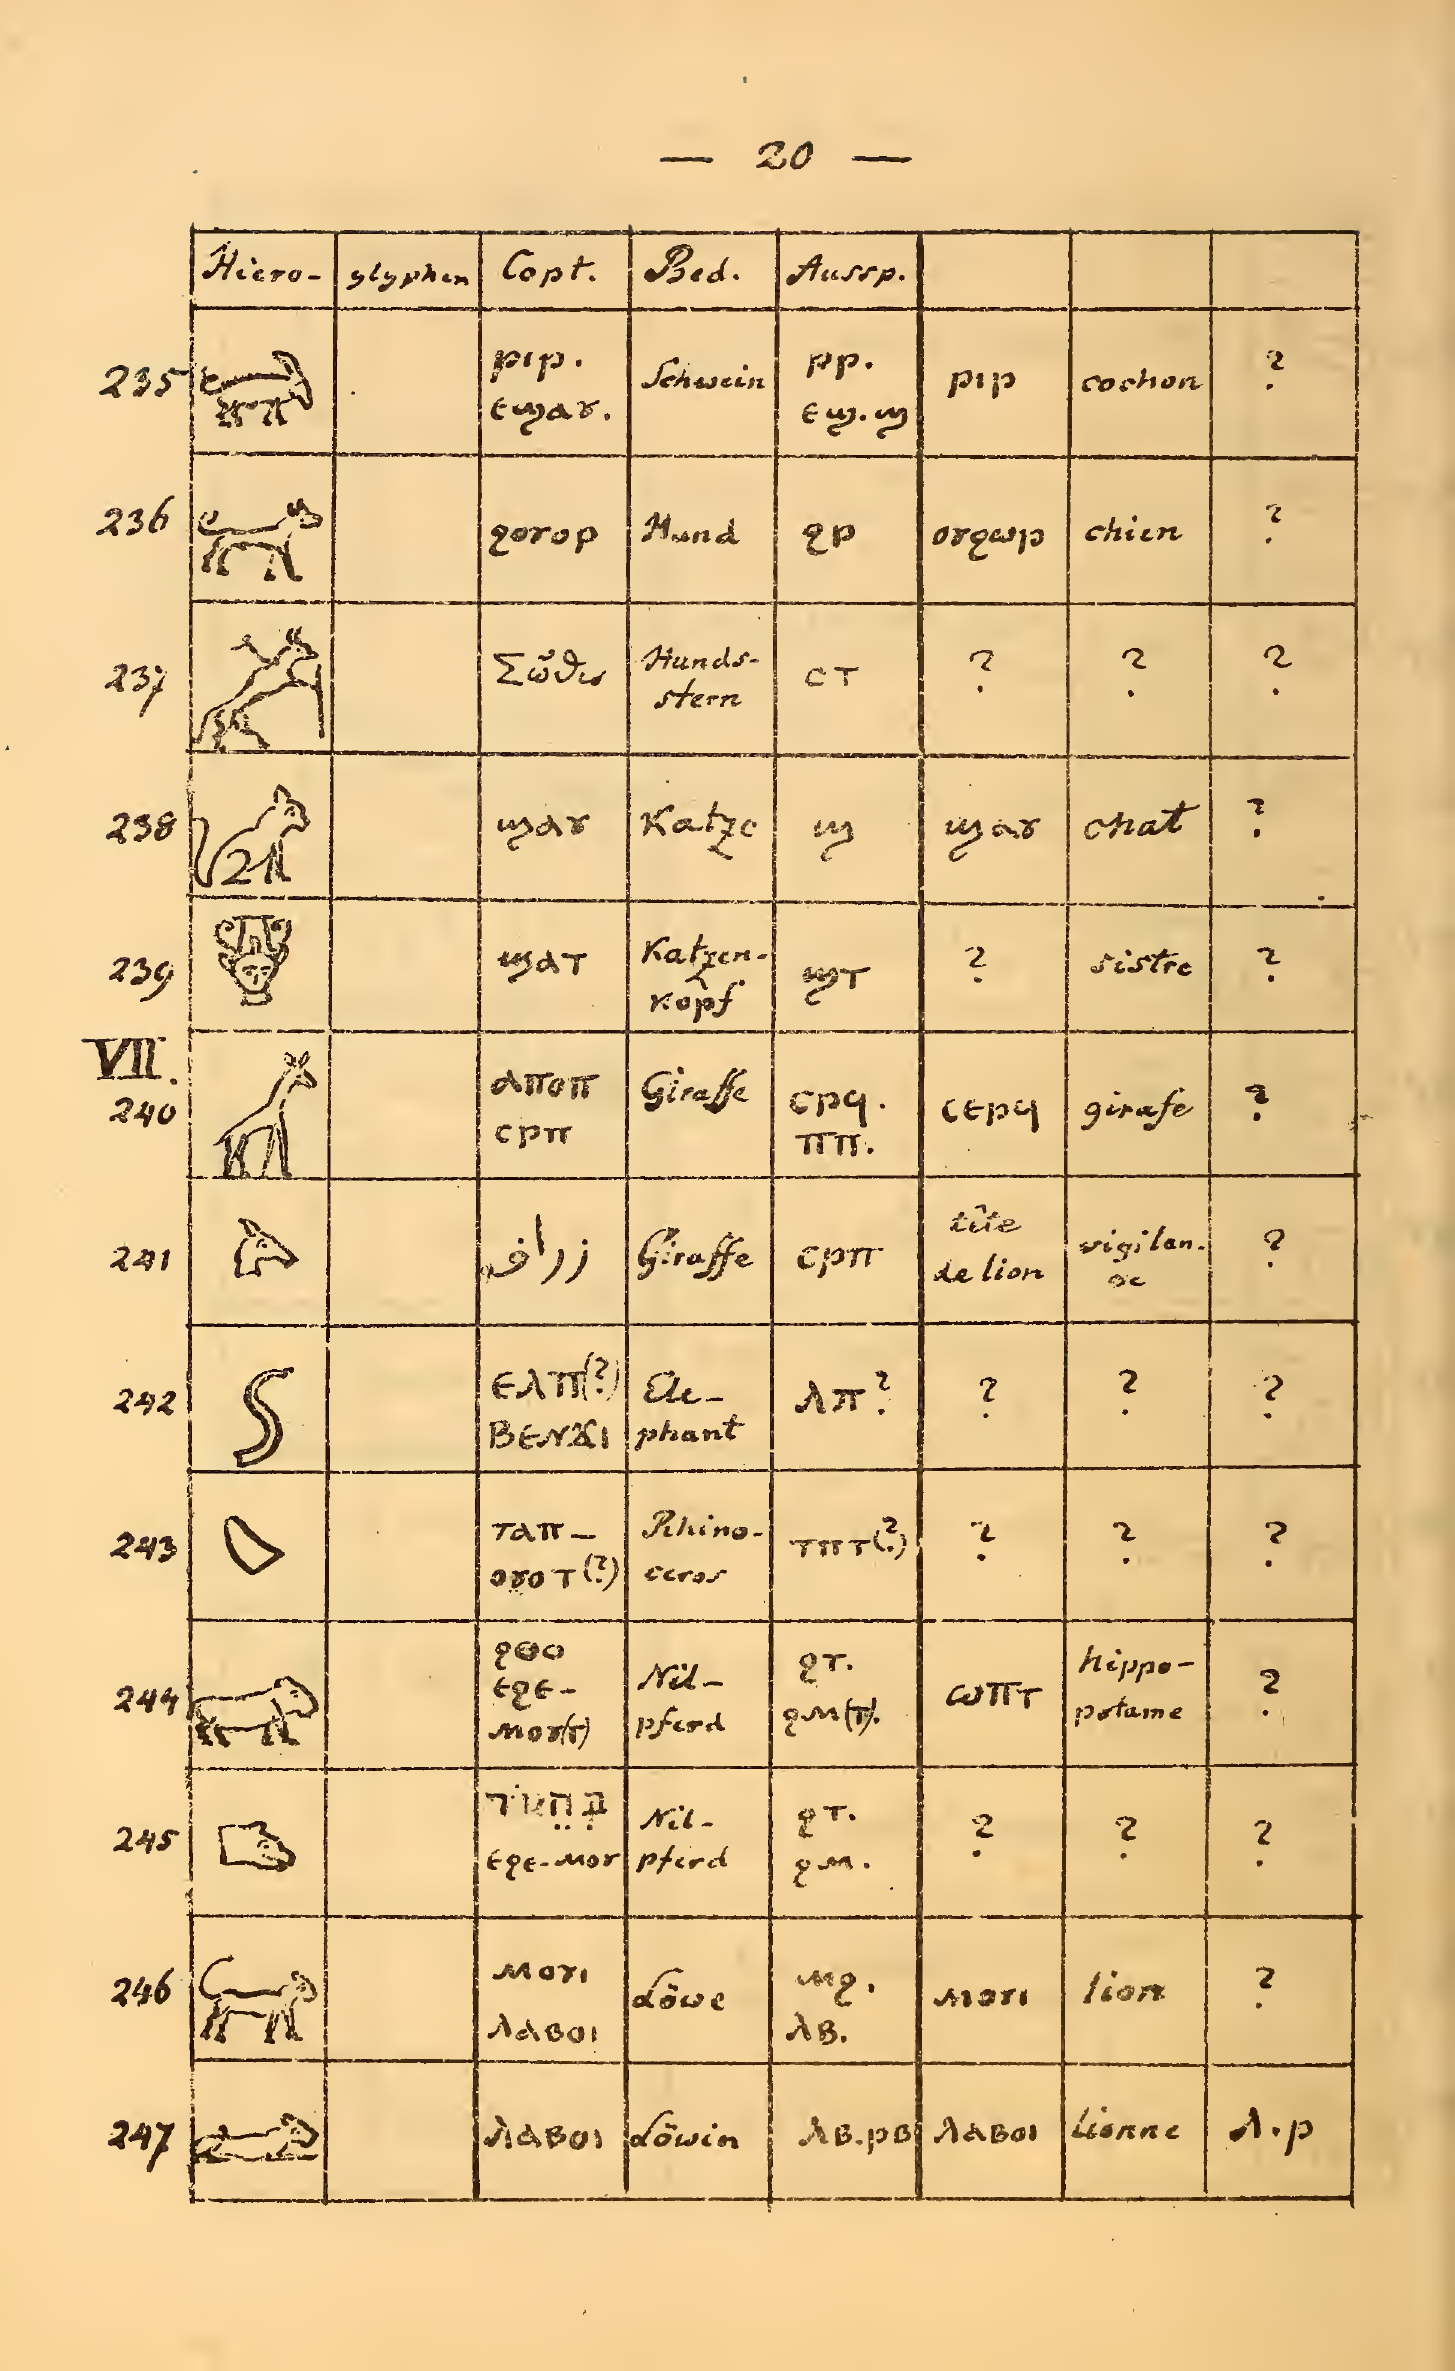 — 20 —
Hiero- glyphen Copt. Bed. Aussp.
235 ⲣⲓⲣ. ⲉϣⲁⲩ. Schwein ⲣⲣ. ⲉϣ.ϣ ⲣⲓⲣ cochon ?
236 ϩⲟⲩⲟⲣ Hund ϩⲣ ⲟⲩϩⲱⲣ chien ?
237 Σῶθις Hunds- stern ⲥⲧ ? ? ?
238 ϣⲁⲩ Katze ϣ ϣⲁⲩ chat ?
239 ϣⲁⲧ Katzen- kopf ϣⲧ ? sistre ?
VII.
240 ⲁⲡⲟⲡ ⲥⲣⲡ Giraffe ⲥⲣϥ. ⲡⲡ. ⲥⲉⲣϥ girafe ?
241 زراف Giraffe ⲥⲣⲡ tête de lion vigilan- ce ?
242 ⲉⲗⲡ(?) ⲃⲉⲛϫⲓ Ele- phant ⲗⲡ? ? ? ?
243 ⲧⲁⲡ- ⲟⲩⲟⲧ(?) Rhino- ceros ⲧⲡⲧ(?) ? ? ?
244 ϩⲑⲟ ⲉϩⲉ- ⲙⲟⲩ(ⲧ) Nil- pferd ϩⲧ. ϩⲙ(ⲧ). ⲱⲡⲧ hippo- potame ?
245 ⲉϩⲉ-ⲙⲟⲩ Nil- pferd ϩⲧ. ϩⲙ. ? ? ?
246 ⲙⲟⲩⲓ ⲗⲁⲃⲟⲓ Löwe ⲙϩ. ⲗⲃ. ⲙⲟⲩⲓ lion ?
247 ⲗⲁⲃⲟⲓ Löwin ⲗⲃ.ⲣⲃ ⲗⲁⲃⲟⲓ lionne ⲗ.ⲣ